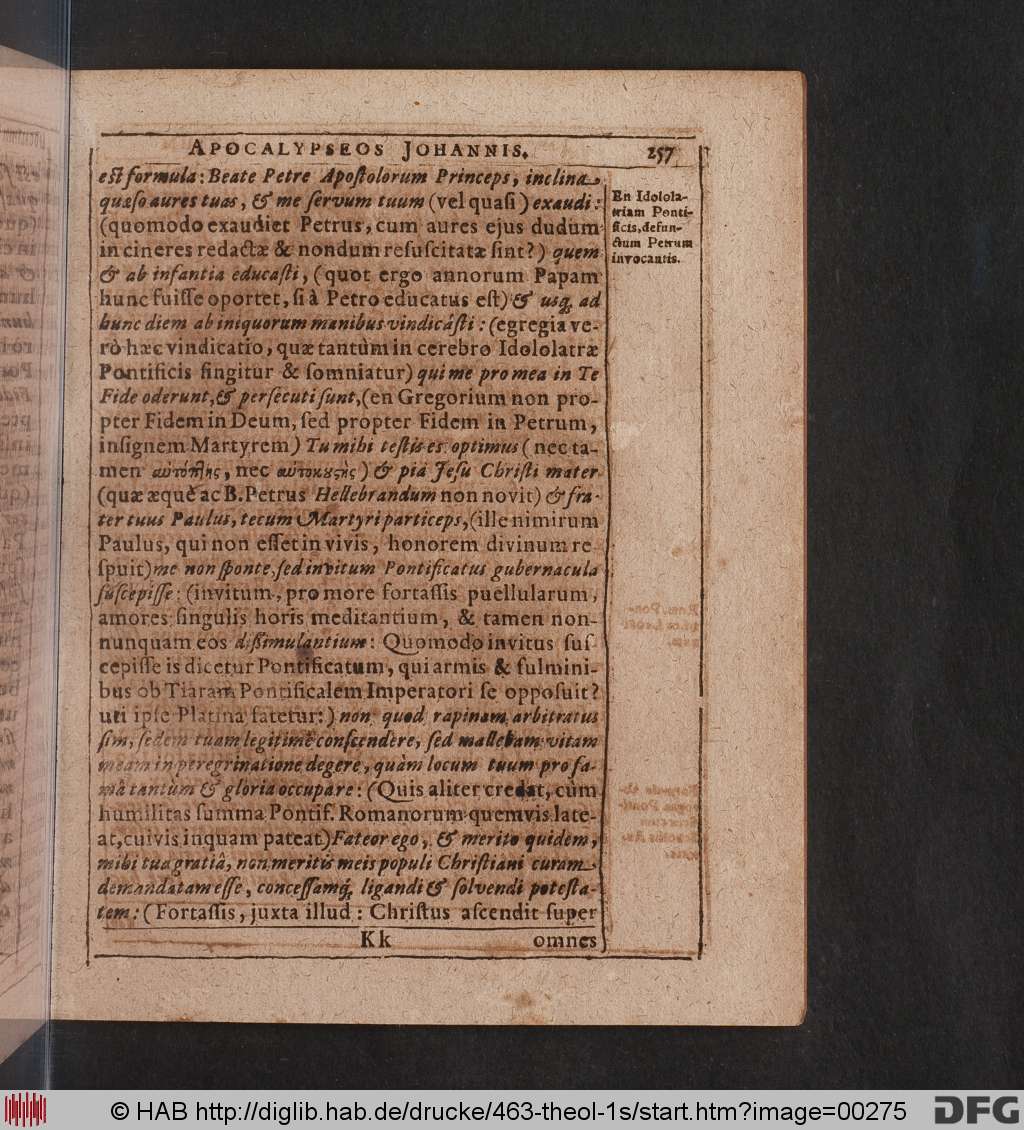 APOCALYPSEOS JOHANNIS. 257
est formula: Beate Petre Apostolorum Princeps, inclina
quæso aures tuas, & me servum tuum (vel quasi) exaudi:
(quomodo exaudiet Petrus, cum aures ejus dudum
in cineres redactæ & nondum resuscitatæ sint?) quem
& ab infantia educasti, (quot ergo annorum Papam
hunc fuisse oportet, si à Petro educatus est) & usq; ad
hunc diem ab iniquorum manibus vindicásti: (egregia ve-
rò hæc vindicatio, quæ tantùm in cerebro Idololatræ
Pontificis fingitur & somniatur) qui me pro mea in Te
Fide oderunt, & persecuti sunt, (en Gregorium non pro-
pter Fidem in Deum, sed propter Fidem in Petrum,
insignem Martyrem) Tu mihi testis es optimus (nec ta-
men αὐτόπτης, nec αὐτοκουςὴς) & pia Jesu Christi mater
(quæ æquè ac B. Petrus Hellebrandum non novit) & fra-
ter tuus Paulus, tecum Martyri particeps, (ille nimirum
Paulus, qui non esset in vivis, honorem divinum re
spuit) me non sponte, sed invitum Pontificatus gubernacula
suscepisse: (invitum, pro more fortassis puellularum,
amores singulis horis meditantium, & tamen non-
nunquam eos dissimulantium: Quomodo invitus sus
cepisse is dicetur Pontificatum, qui armis & fulmini-
bus ob Tiaram Pontificalem Imperatori se opposuit?
uti ipse Platina fatetur:) non, quod rapinam arbitratus
sim, sedem tuam legitimè conscendere, sed mallebam vitam
meam in peregrinatione degere, quàm locum tuum pro fa-
mâ tantùm & gloria occupare: (Quis aliter credat, cùm
humilitas summa Pontif. Romanorum quemvis late-
at, cuivis inquam pateat) Fateor ego, & merito quidem,
mihi tua gratiâ, non meritis meis populi Christiani curam
demandatam esse, concessamq; ligandi & solvendi potesta-
tem: (Fortassis, juxta illud: Christus ascendit super
Kk omnes
En Idolola-
triam Ponti-
ficis, defun-
ctum Petrum
invocantis.
© HAB http://diglib.hab.de/drucke/463-theol-1s/start.htm?image=00275
DFG